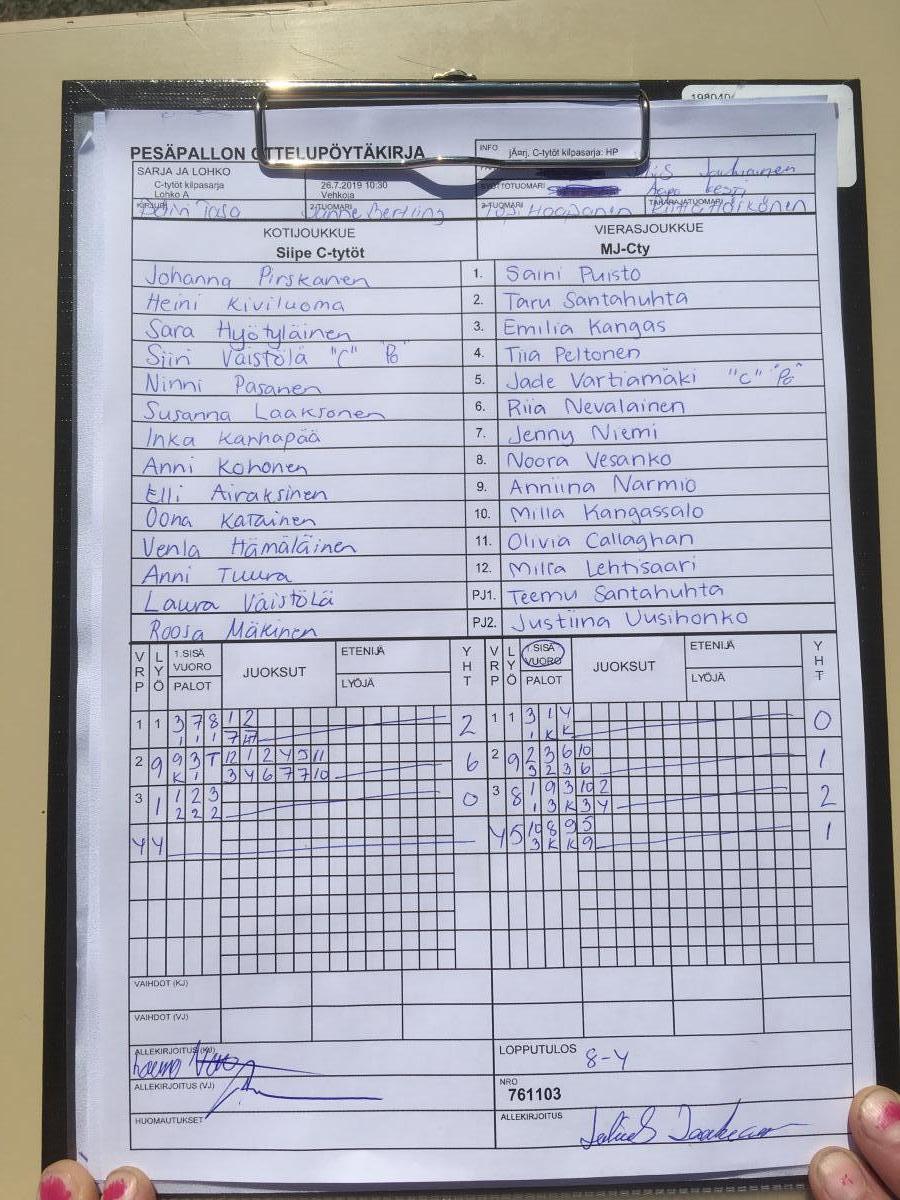 PESÄPALLON OTTELUPÖYTÄKIRJA
INFO jÄ¤rj, C-tytöt kilpasarja: HP
SARJA JA LOHKO
C-tytöt kilpasarja
Lohko A
26.7.2019 10:30
Vehkoja
KOTIJOUKKUE VIERASJOUKKUE
Siipe C-tytöt MJ-Cty
Johanna Pirskanen 1. Saini Puisto
Heini Kiviluoma 2. Taru Santahuhta
Sara Hyötyläinen 3. Emilia Kangas
Siiri Väistölä "C" Pö 4. Tiia Peltonen
Ninni Pasanen 5. Jade Vartiamäki "C" "Pö"
Susanna Laaksonen 6. Riia Nevalainen
Inka Karhapää 7. Jenny Niemi
Anni Kohonen 8. Noora Vesanko
Elli Airaksinen 9. Anniina Narmio
Oona Katainen 10. Milla Kangassalo
Venla Hämäläinen 11. Olivia Callaghan
Anni Tuura 12. Milla Lehtisaari
Laura Väistölä PJ1. Teemu Santahuhta
Roosa Mäkinen PJ2. Justiina Uusihonko
VRP LYÖ 1.SISÄ VUORO PALOT JUOKSUT ETENIJÄ LYÖJÄ YHT VRP LYÖ 1.SISÄ VUORO PALOT JUOKSUT ETENIJÄ LYÖJÄ YHT
1 1 3 7 8 1 2 2 1 1 3 1 4 0
2 9 9 3 T 12 1 2 4 5 11 6 2 9 2 3 6 10 1
K 1 3 4 6 7 7 10 3 2 3 6
3 1 1 2 3 0 3 8 1 9 3 10 2 2
2 2 2 1 3 K 3 4
4 4 4 5 10 8 9 5 1
3 K K 9
VAIHDOT (KJ)
VAIHDOT (VJ)
ALLEKIRJOITUS (KJ) LOPPUTULOS 8-4
ALLEKIRJOITUS (VJ) NRO
761103
HUOMAUTUKSET ALLEKIRJOITUS